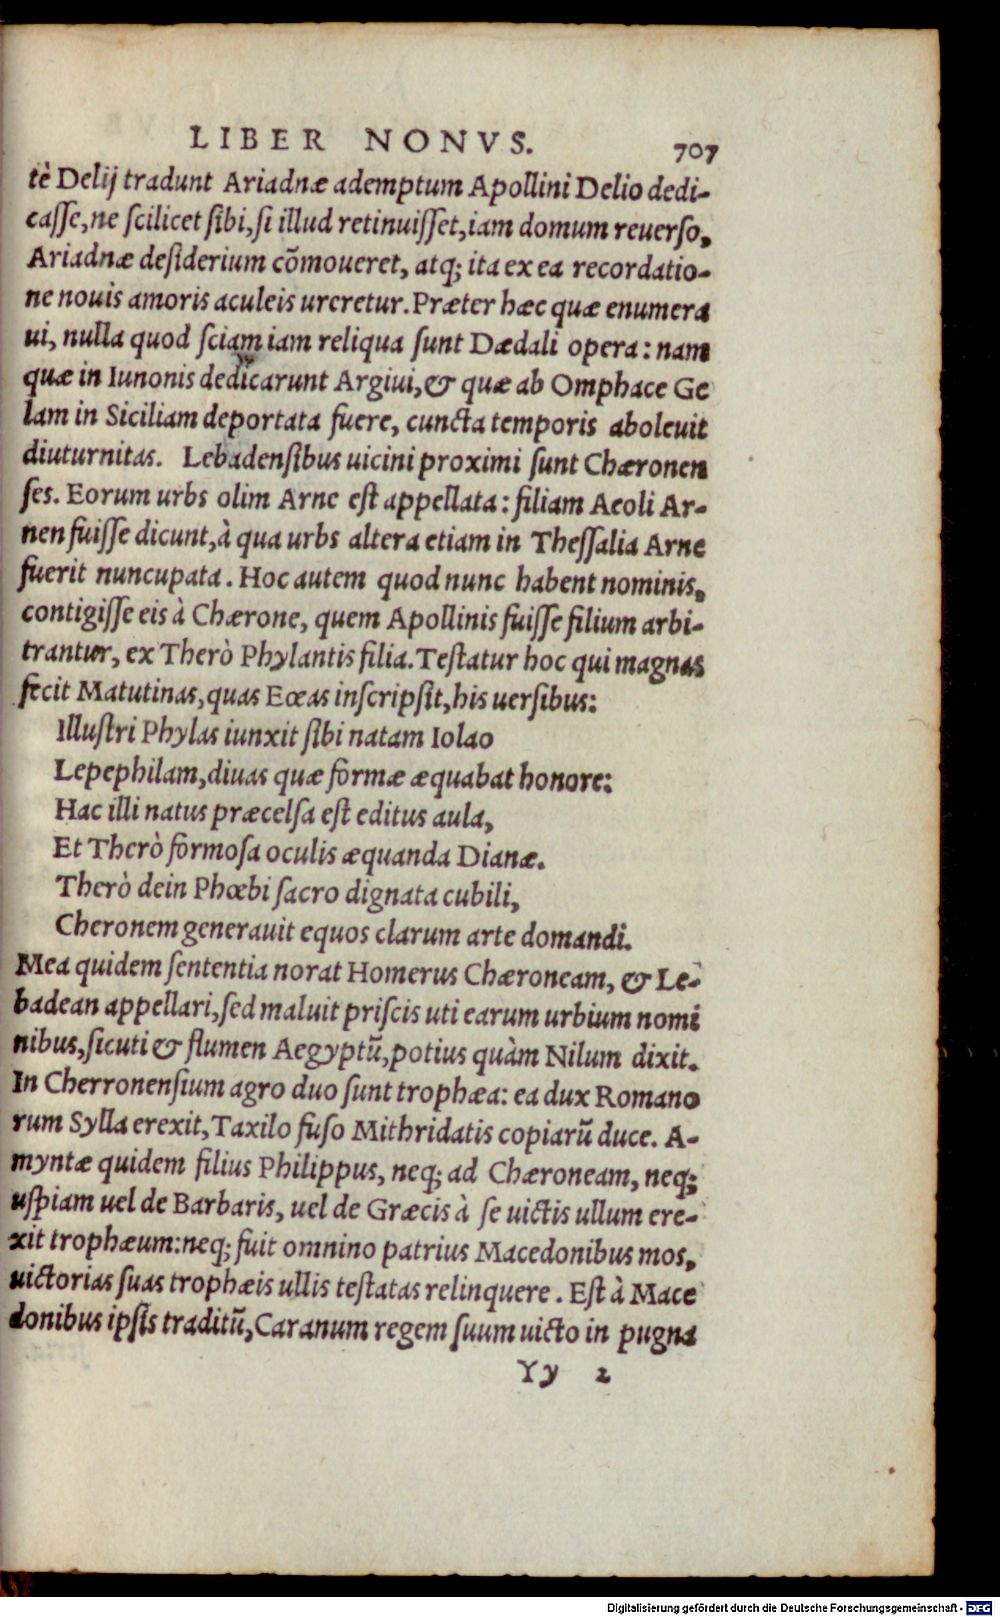 LIBER NONVS. 707
tè Delij tradunt Ariadnæ ademptum Apollini Delio dedi-
casse, ne scilicet sibi, si illud retinuisset, iam domum reuerso,
Ariadnæ desiderium cõmoueret, atq; ita ex ea recordatio-
ne nouis amoris aculeis urcretur. Præter hæc quæ enumera
ui, nulla quod sciam iam reliqua sunt Dædali opera: nam
quæ in Iunonis dedicarunt Argiui, & quæ ab Omphace Ge
lam in Siciliam deportata fuere, cuncta temporis aboleuit
diuturnitas. Lebadensibus uicini proximi sunt Chæronen
ses. Eorum urbs olim Arne est appellata: filiam Aeoli Ar-
nen fuisse dicunt, à qua urbs altera etiam in Thessalia Arne
fuerit nuncupata. Hoc autem quod nunc habent nominis,
contigisse eis à Chærone, quem Apollinis fuisse filium arbi-
trantur, ex Therò Phylantis filia. Testatur hoc qui magnas
fecit Matutinas, quas Eœas inscripsit, his uersibus:
Illustri Phylas iunxit sibi natam Iolao
Lepephilam, diuas quæ formæ æquabat honore:
Hac illi natus præcelsa est editus aula,
Et Therò formosa oculis æquanda Dianæ.
Therò dein Phœbi sacro dignata cubili,
Cheronem generauit equos clarum arte domandi.
Mea quidem sententia norat Homerus Chæroneam, & Le-
badean appellari, sed maluit priscis uti earum urbium nomi
nibus, sicuti & flumen Aegyptũ, potius quàm Nilum dixit.
In Cherronensium agro duo sunt trophæa: ea dux Romano
rum Sylla erexit, Taxilo fuso Mithridatis copiarũ duce. A-
myntæ quidem filius Philippus, neq; ad Chæroneam, neq;
uspiam uel de Barbaris, uel de Græcis à se uictis ullum ere-
xit trophæum: neq; fuit omnino patrius Macedonibus mos,
uictorias suas trophæis ullis testatas relinquere. Est à Mace
donibus ipsis traditũ, Caranum regem suum uicto in pugna
Yy 2
Digitalisierung gefördert durch die Deutsche Forschungsgemeinschaft - DFG